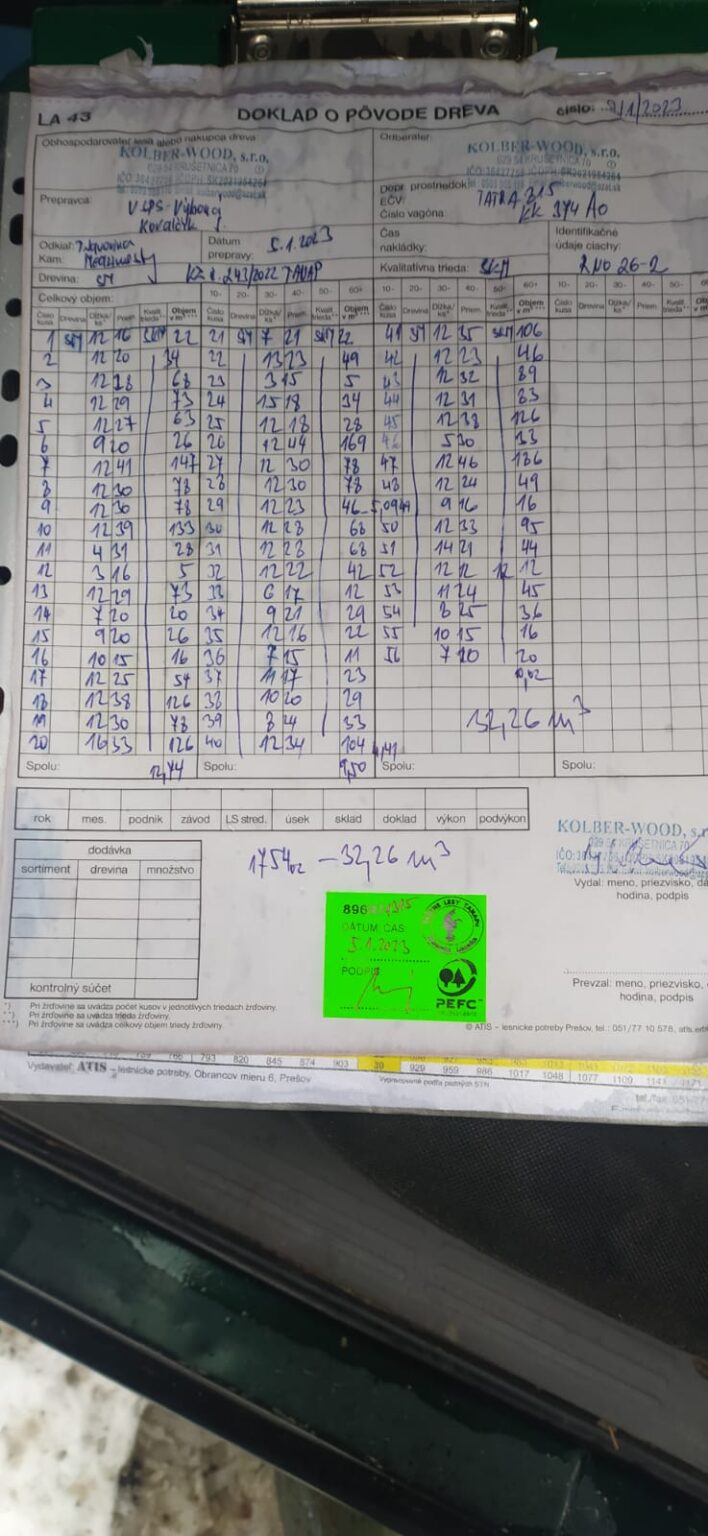 LA 43 DOKLAD O PÔVODE DREVA číslo: 2/1/2023
Obhospodarovateľ lesa alebo nákupca dreva
KOLBER-WOOD, s.r.o.
029 54 KRUŠETNICA 70
Odberateľ
KOLBER-WOOD, s.r.o.
029 54 KRUŠETNICA 70
Prepravca:
Dopr. prostriedok TATRA 815
EČV: KK 374 AO
Číslo vagóna:
Odkiaľ:
Kam:
Dátum
prepravy: 5.1.2023
Čas
nakládky:
Identifikačné
údaje ciachy:
2 NO 26-2
Drevina: SM
Kvalitatívna trieda:
Celkový objem: 10- 20- 30- 40- 50- 60+ 10- 20- 30- 40- 50- 60+ 10- 20- 30- 40- 50-
Číslo kusa Drevina Dĺžka/ks Priem. Kvalit. trieda Objem v m³
1 SM 12 16 22 21 SM 7 21 22 41 SM 12 35 106
2 12 20 34 22 13 23 49 42 12 23 46
3 12 28 68 23 3 15 5 43 12 32 89
4 12 29 73 24 15 18 34 44 12 31 83
5 12 27 63 25 12 18 28 45 12 38 126
6 9 20 26 26 12 44 169 46 5 30 33
7 12 41 147 27 12 30 78 47 12 46 186
8 12 30 78 28 12 30 78 48 12 24 49
9 12 30 78 29 12 23 46 9 16 16
10 12 39 133 30 12 28 68 50 12 33 95
11 4 31 28 31 12 28 68 51 14 21 44
12 3 16 5 32 12 22 42 52 12 12 12
13 12 29 73 33 6 17 12 53 11 24 45
14 7 20 20 34 9 21 29 54 8 25 36
15 9 20 26 35 12 16 22 55 10 15 16
16 10 15 16 36 7 15 11 56 7 20 20
17 12 25 54 37 11 17 23
18 12 38 126 38 10 20 29
19 12 30 78 39 8 24 33 32,26 m³
20 16 33 126 40 12 34 104
Spolu: 12,74 Spolu: 9,50 Spolu: Spolu:
rok mes. podnik závod LS stred. úsek sklad doklad výkon podvýkon
dodávka
sortiment drevina množstvo
kontrolný súčet
– 32,26 m³
KOLBER-WOOD, s.r
029 54 KRUŠETNICA 70
Vydal: meno, priezvisko, dá
hodina, podpis
DÁTUM, ČAS
5.1.2023
PODPIS
PEFC
Prevzal: meno, priezvisko,
hodina, podpis
*) Pri žrďovine sa uvádza počet kusov v jednotlivých triedach žrďoviny.
**) Pri žrďovine sa uvádza trieda žrďoviny.
***) Pri žrďovine sa uvádza celkový objem triedy žrďoviny
© ATIS – lesnícke potreby Prešov, tel.: 051/77 10 578, atis.
793 820 845 874 903 30 929 959 986 1017 1048 1077 1109 1141 1171
Vydavateľ: ATIS – lesnícke potreby, Obrancov mieru 6, Prešov
Vypracované podľa platných STN
tel./fax: 051